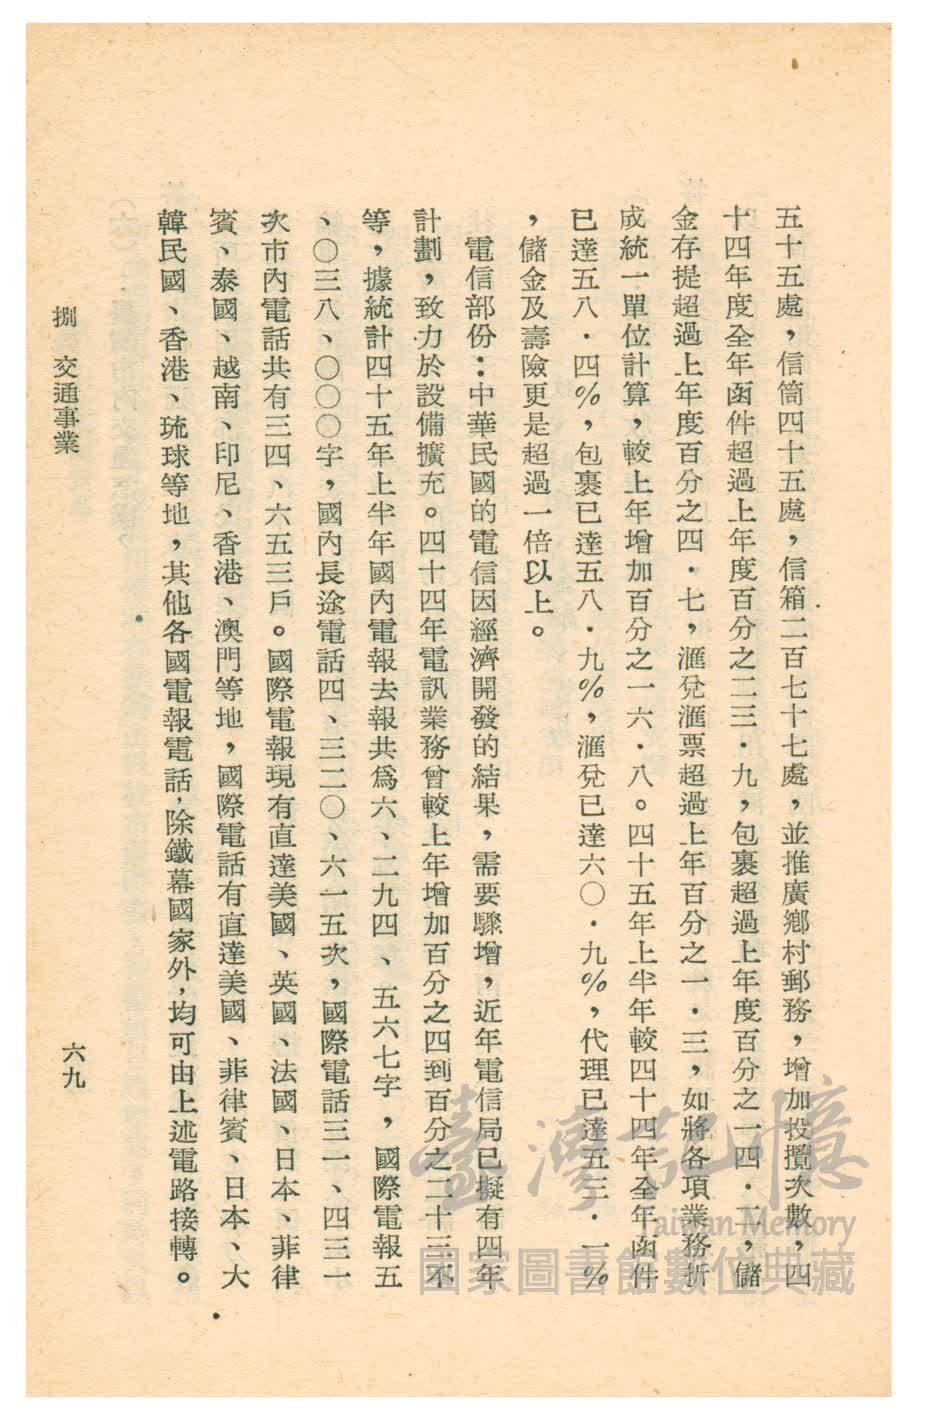 五十五處，信筒四十五處，信箱二百七十七處，並推廣鄉村郵務，增加投攬次數，四
十四年度全年函件超過上年度百分之二三．九，包裹超過上年度百分之一四．二，儲
金存提超過上年度百分之四．七，滙兌滙票超過上年百分之一．三，如將各項業務折
成統一單位計算，較上年增加百分之一六．八。四十五年上半年較四十四年全年函件
已達五八．四%，包裹已達五八．九%，滙兌已達六〇．九%，代理已達五三．一%
，儲金及壽險更是超過一倍以上。
電信部份：中華民國的電信因經濟開發的結果，需要驟增，近年電信局已擬有四年
計劃，致力於設備擴充。四十四年電訊業務曾較上年增加百分之四到百分之二十三不
等，據統計四十五年上半年國內電報去報共爲六、二九四、五六七字，國際電報五
、〇三八、〇〇〇字，國內長途電話四、三二〇、六一五次，國際電話三一、四三一
次市內電話共有三四、六五三戶。國際電報現有直達美國、英國、法國、日本、菲律
賓、泰國、越南、印尼、香港、澳門等地，國際電話有直達美國、菲律賓、日本、大
韓民國、香港、琉球等地，其他各國電報電話，除鐵幕國家外，均可由上述電路接轉。
捌　交通事業
六九
臺灣記憶
Taiwan Memory
國家圖書館數位典藏